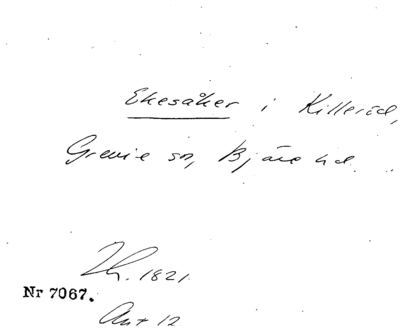 Ekesåker i Killeröd,
Grevie sn, Bjäre hd.
Th. 1821
Nr 7067.
Ant 12